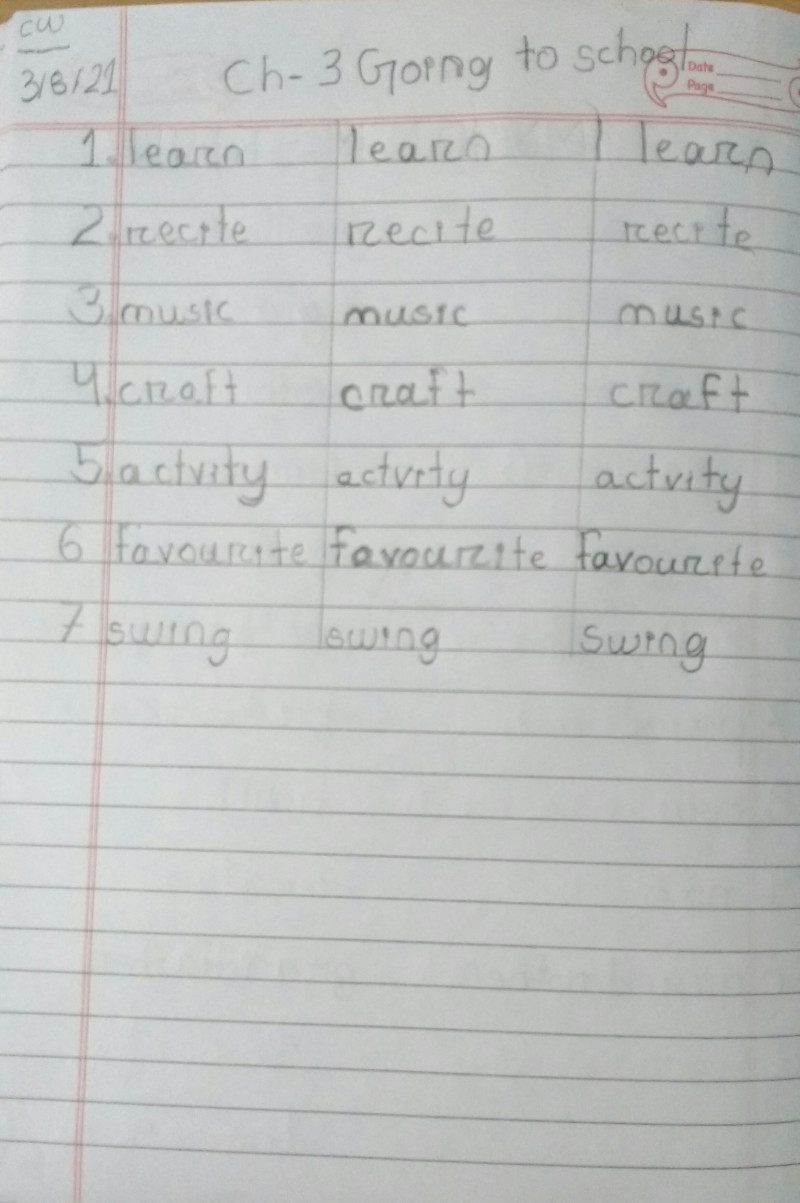 CW
3/8/21
Ch - 3 Going to school
Date
Page
1. learn learn learn
2. recite recite recite
3. music music music
4. craft craft craft
5. actvity actvity actvity
6 favourite favourite favourite
7 swing swing swing